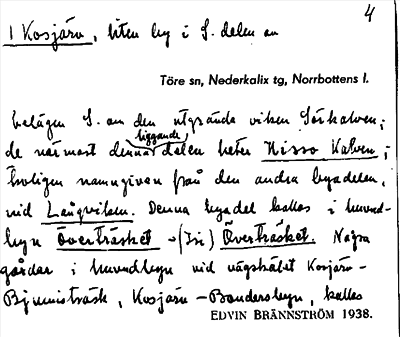 4
1 Kosjärv, liten by i S. delen av
Töre sn, Nederkalix tg, Norrbottens l.
belägen S. om den utgrända viken Sörkalven;
liggande
de närmast denna delen heter Hisso Kalven;
troligen namngiven från den andra byadelen,
vid Långviken. Denna byadel kallas i huvud-
byn Överträsket -(Isi) Överträsket. Några
gårdar i huvudbyn vid vägskälet Kosjärv-
Bjumisträsk, Kosjärv-Bondersbyn, kallas
EDVIN BRÄNNSTRÖM 1938.